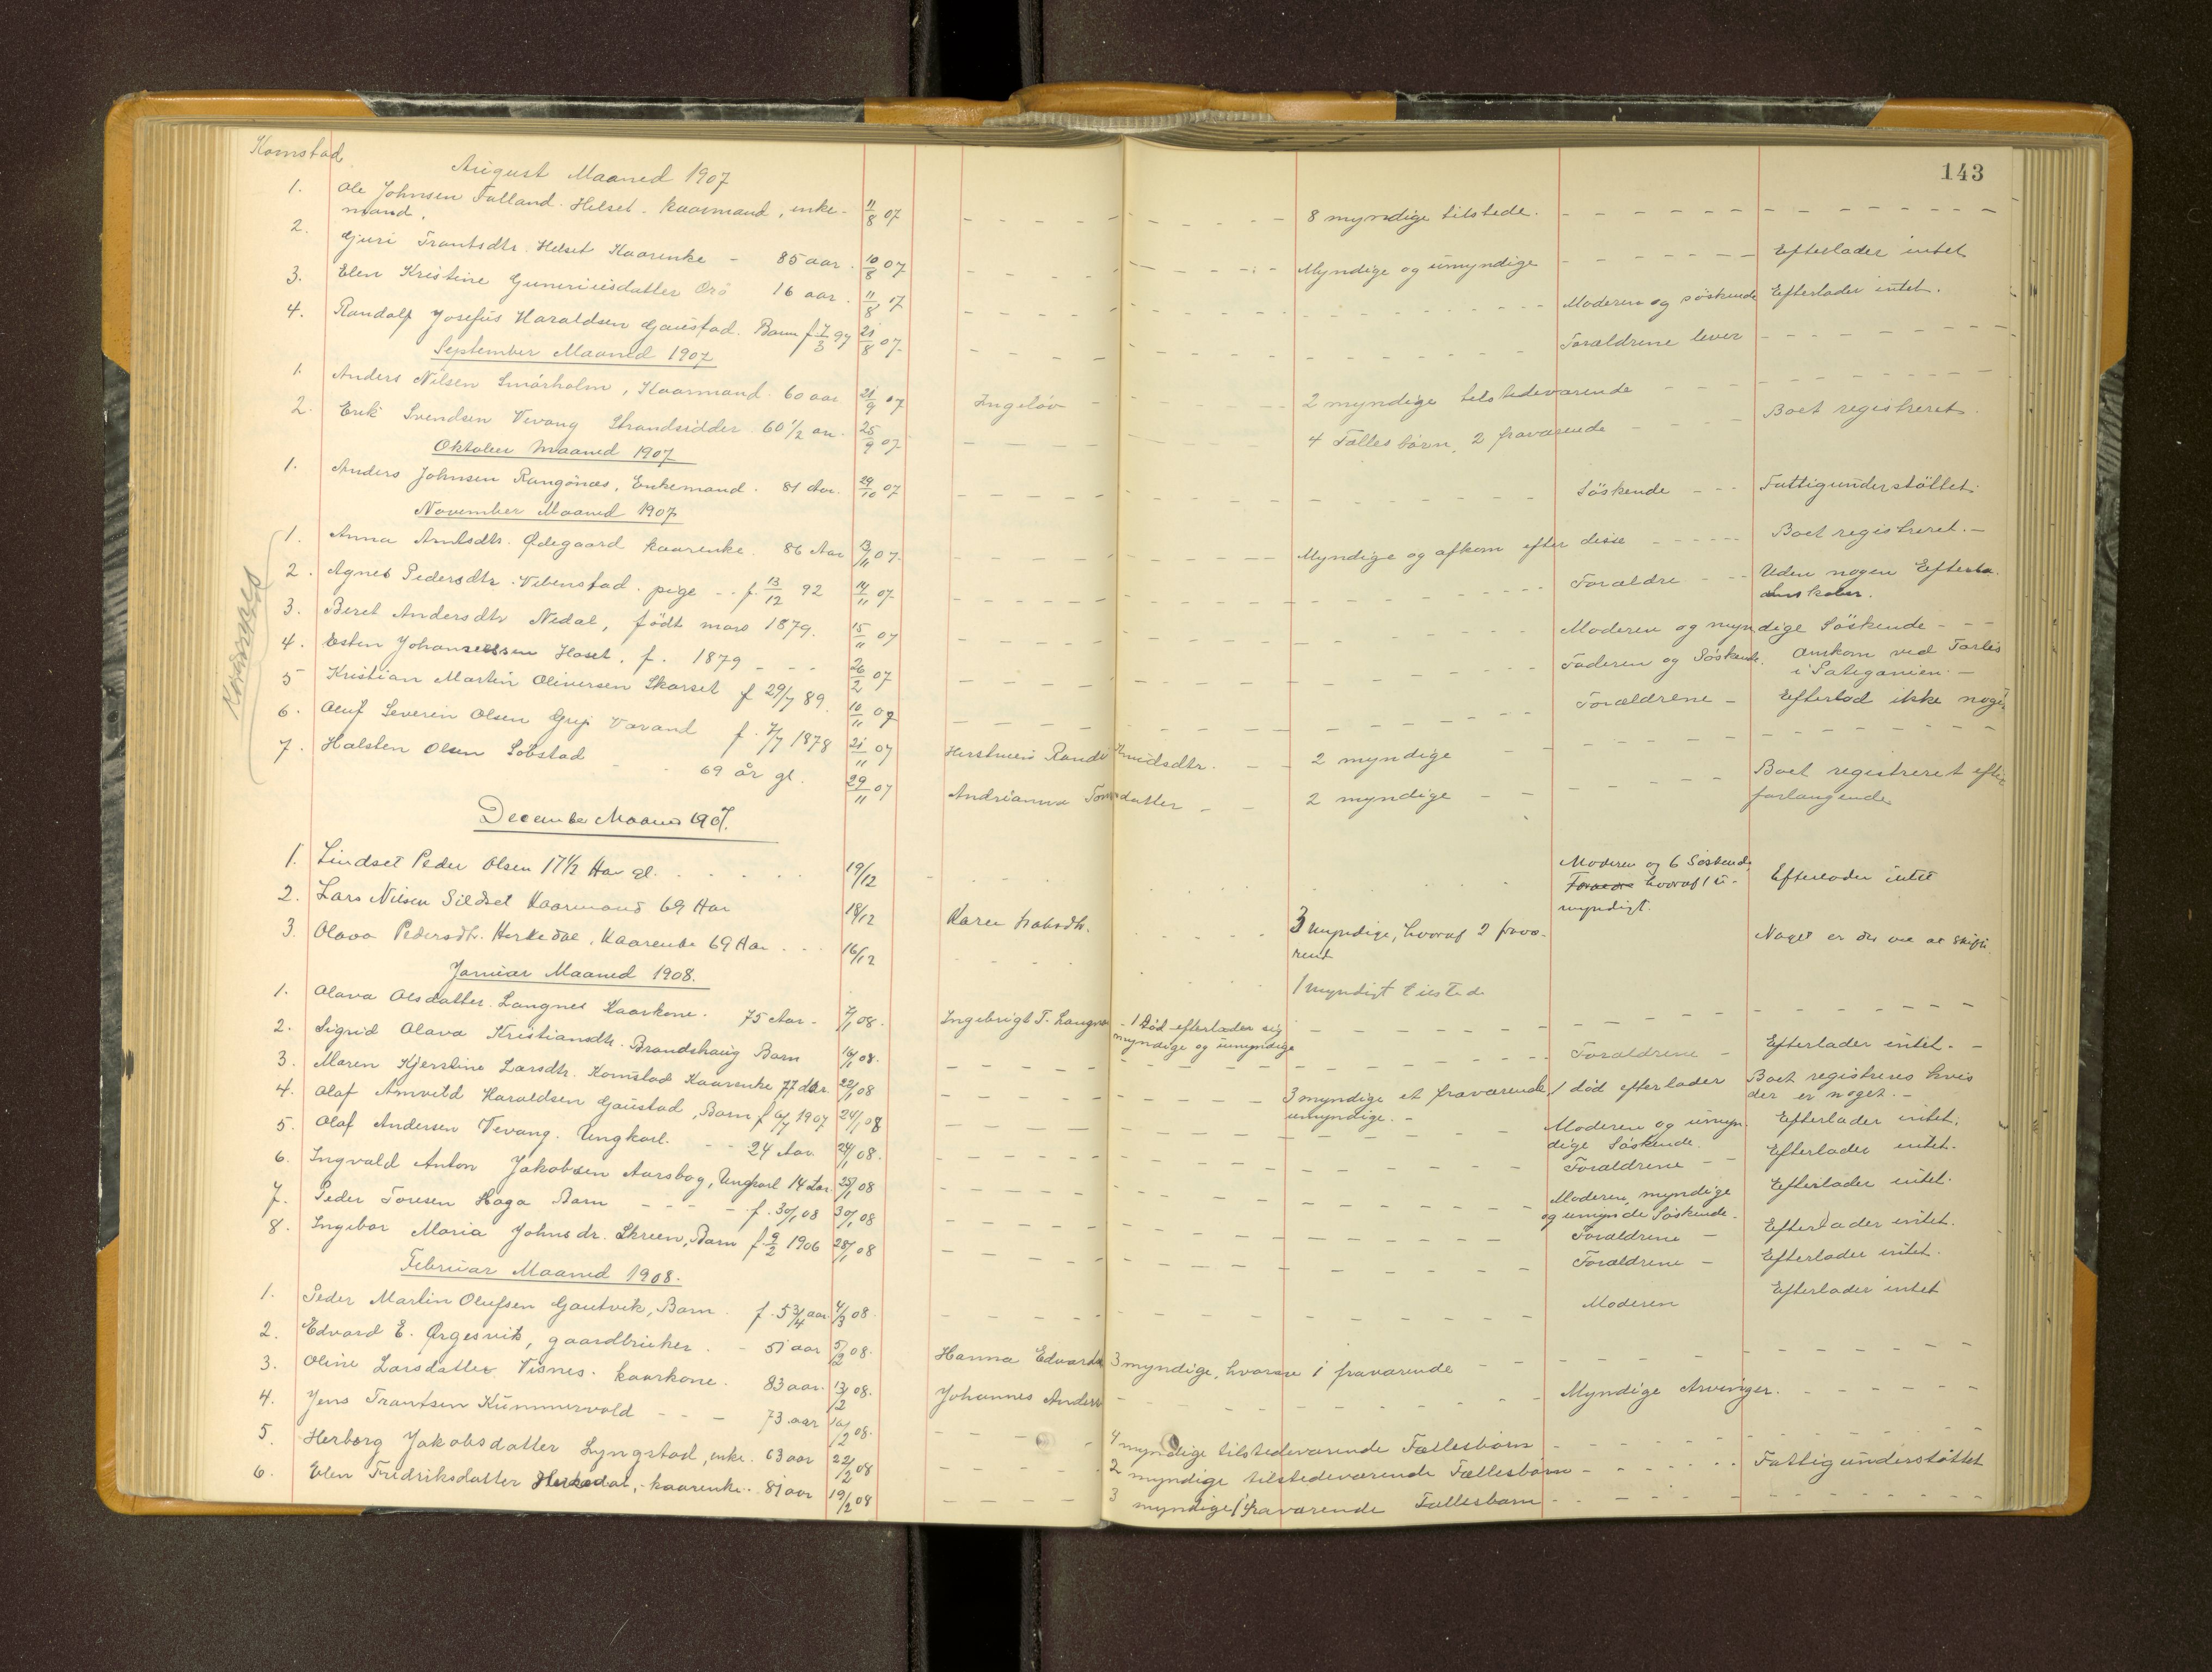 143
Komstad
August Maaned 1907
1. Ole Johnsen Talland. Helset. kaarmand, enke- 11/8 07 8 myndige tilstede.
mand.
2. Guri Frantsdtr. Helset Kaarenke - 85 aar. 10/8 07 Myndige og umyndige Efterlader intet
3. Elen Kristine Gunneriusdatter Orö 16 aar. 11/8 07 Moderen og söskende Efterlader intet.
4. Randolf Josefus Haraldsen Gaustad. Barn f 7/3 97 21/8 07. Forældrene lever
September Maaned 1907
1. Anders Nilsen Smörholm, Kaarmand. 60 aar 21/9 07 Ingeløv 2 myndige tilstedeværende
2. Erik Svendsen Vevang Strandsidder 60 1/2 aar. 25/9 07 4 Fælles børn, 2 fraværende Boet registreret.
Oktober Maaned 1907
1. Anders Johnsen Rangönæs, Enkemand. 81 Aar. 29/10 07 Söskende Fattigunderstöttet.
November Maaned 1907
Kornstad
1. Anna Arntsdtr. Ødegaard kaarenke. 86 Aar 13/11 07. Myndige og afkom efter disse Boet registreret.-
2. Agnes Pedersdtr. Vebenstad. pige - - f. 13/12 92 14/11 07. Forældre Uden nogen Efterla-
denskaber.
3. Beret Andersdtr Nedal, født mars 1879. 15/11 07 Moderen og myndige Söskende - - -
4. Esten Johannessen Hoset, f. 1879 - - - 26/2 07 Faderen og Söskende. Omkom ved Forlis
i Patagonien. -
5 Kristian Martin Oliversen Skarset f 29/7 89. 10/11 07 Forældrene - Efterlod ikke noget
6. Oluf Severin Olsen Grip Varand f. 7/7 1878 21/11 07 Hustruen Randi Knudsdtr. 2 myndige
7. Halsten Olsen Söbstad - - 69 år gl. 29/11 07 Andrianna Tomsdatter 2 myndige Boet registreret efter
forlangende
December Maaned 1907.
1. Lindset Peder Olsen 17 1/2 Aar gl. 19/12 Moderen og 6 Söskende Efterlader intet
hvoraf 1 u-
myndigt.
2. Lars Nilsen Sildset Kaarmand 69 Aar 18/12 Karen 3 myndige, hvoraf 2 fravæ- Noget er der
rende
3. Olava Pedersdtr. Herkedal, Kaarenke 69 Aar . . . 16/12 1 myndigt tilstede
Januar Maaned 1908.
1. Olava Olsdatter. Langnes Kaarkone. 75 Aar - 7/1 08. Ingebrigt T. Langnes - 1 død efterlader sig
myndige og umyndige
2. Sigrid Olava Kristiansdtr. Brandshaug Barn 16/1 08. Forældrene - Efterlader intet. -
3. Maren Kjerstine Larsdtr. Komstad Kaarenke 77 Aar. 22/1 08 3 myndige et fraværende, 1 død efterlader Boet registreres hvis
umyndige. - der er noget. -
4. Olaf Amveld Haraldsen Gaustad, Barn f 6/4 1907 24/1 08 Moderen og umyn- Efterlader intet.
dige Söskende.
5. Olaf Andersen Vevang. Ungkarl. - - 24 Aar 24/1 08. Forældrene - - Efterlader intet.
6. Ingvald Anton Jakobsen Aarsbog, Ungkarl 14 Aar. 25/1 08 Moderen, myndige Efterlader intet.
og umynde Söskende.
7. Peder Toresen Haga Barn - - - - f. 30/1 08 30/1 08 Forældrene - Efterlader intet.
8. Ingebor Maria Johnsdr. Skreen, Barn f 9/2 1906 28/1 08 Forældrene - Efterlader intet.
Februar Maaned 1908.
1. Peder Martin Olufsen Gautvik, Barn. f. 5 3/4 aar 4/3 08. Moderen Efterlader intet
2. Edvard E. Ørgesvik, gaardbruker. - 51 aar 5/2 08. Hanna Edvards 3 myndige, hvorav 1 fraværende
3. Oline Larsdatter Visnes. kaarkone. 83 aar. 13/2 08. Johannes Anders Myndige Arvinger.
4. Jens Frantsen Kummervold - - - 73 aar 10/2 08. 4 myndige tilstedeværende Fællesbørn
5. Herborg Jakobsdatter Lyngstad, enke. 63 aar 22/2 08 2 myndige tilstedeværende Fællesbørn Fattigunderstöttet
6. Elen Fredriksdatter Herkedal, - kaarenke. 81 aar 19/2 08 3 myndige, 1 fraværende Fællesbarn